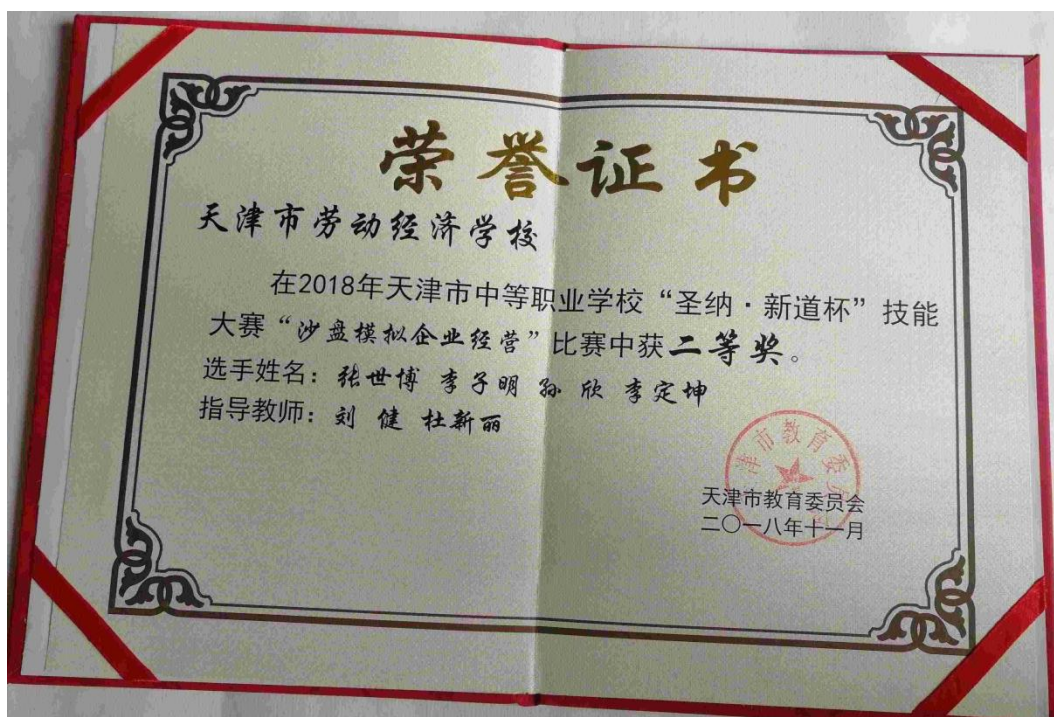 荣誉证书
天津市劳动经济学校
在2018年天津市中等职业学校“圣纳·新道杯”技能
大赛“沙盘模拟企业经营”比赛中获二等奖。
选手姓名：张世博 李子明 孙 欣 李定坤
指导教师：刘 健 杜新丽
天津市教育委员会
天津市教育委员会
二〇一八年十一月